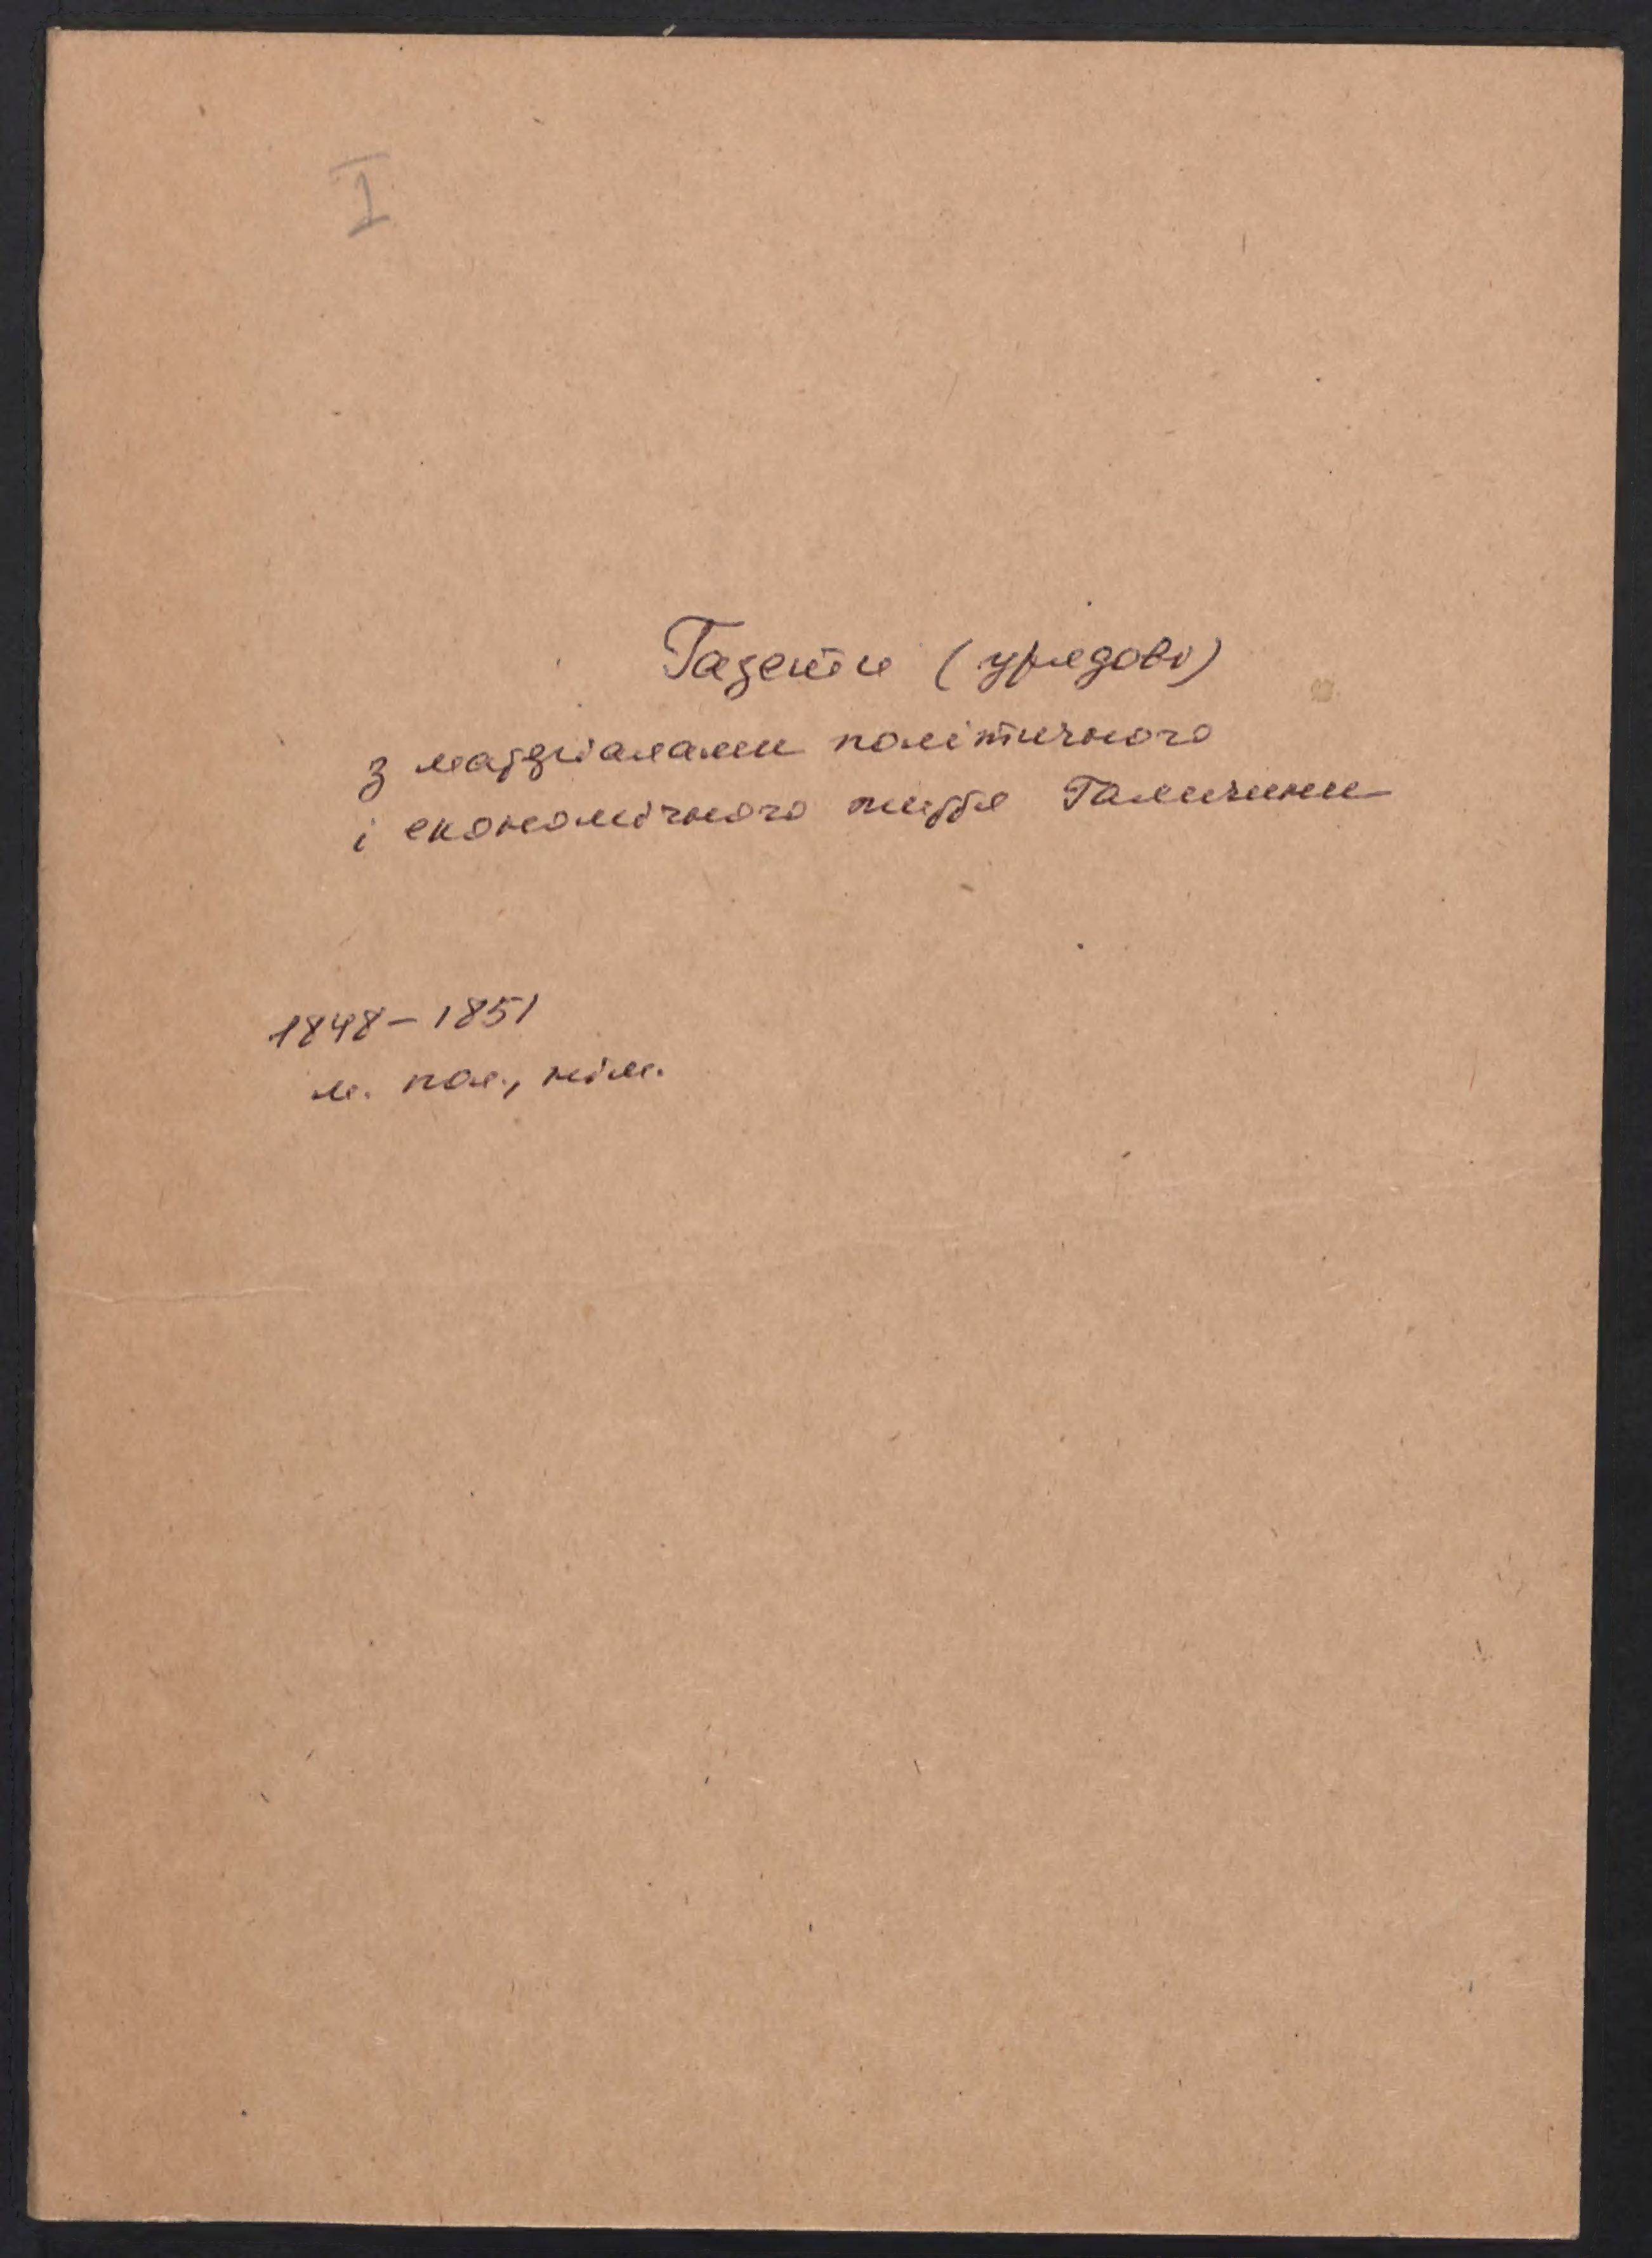 I
Газети (урядові)
з матеріалами політичного
і економічного життя Галичини
1848-1851
м. пол., нім.